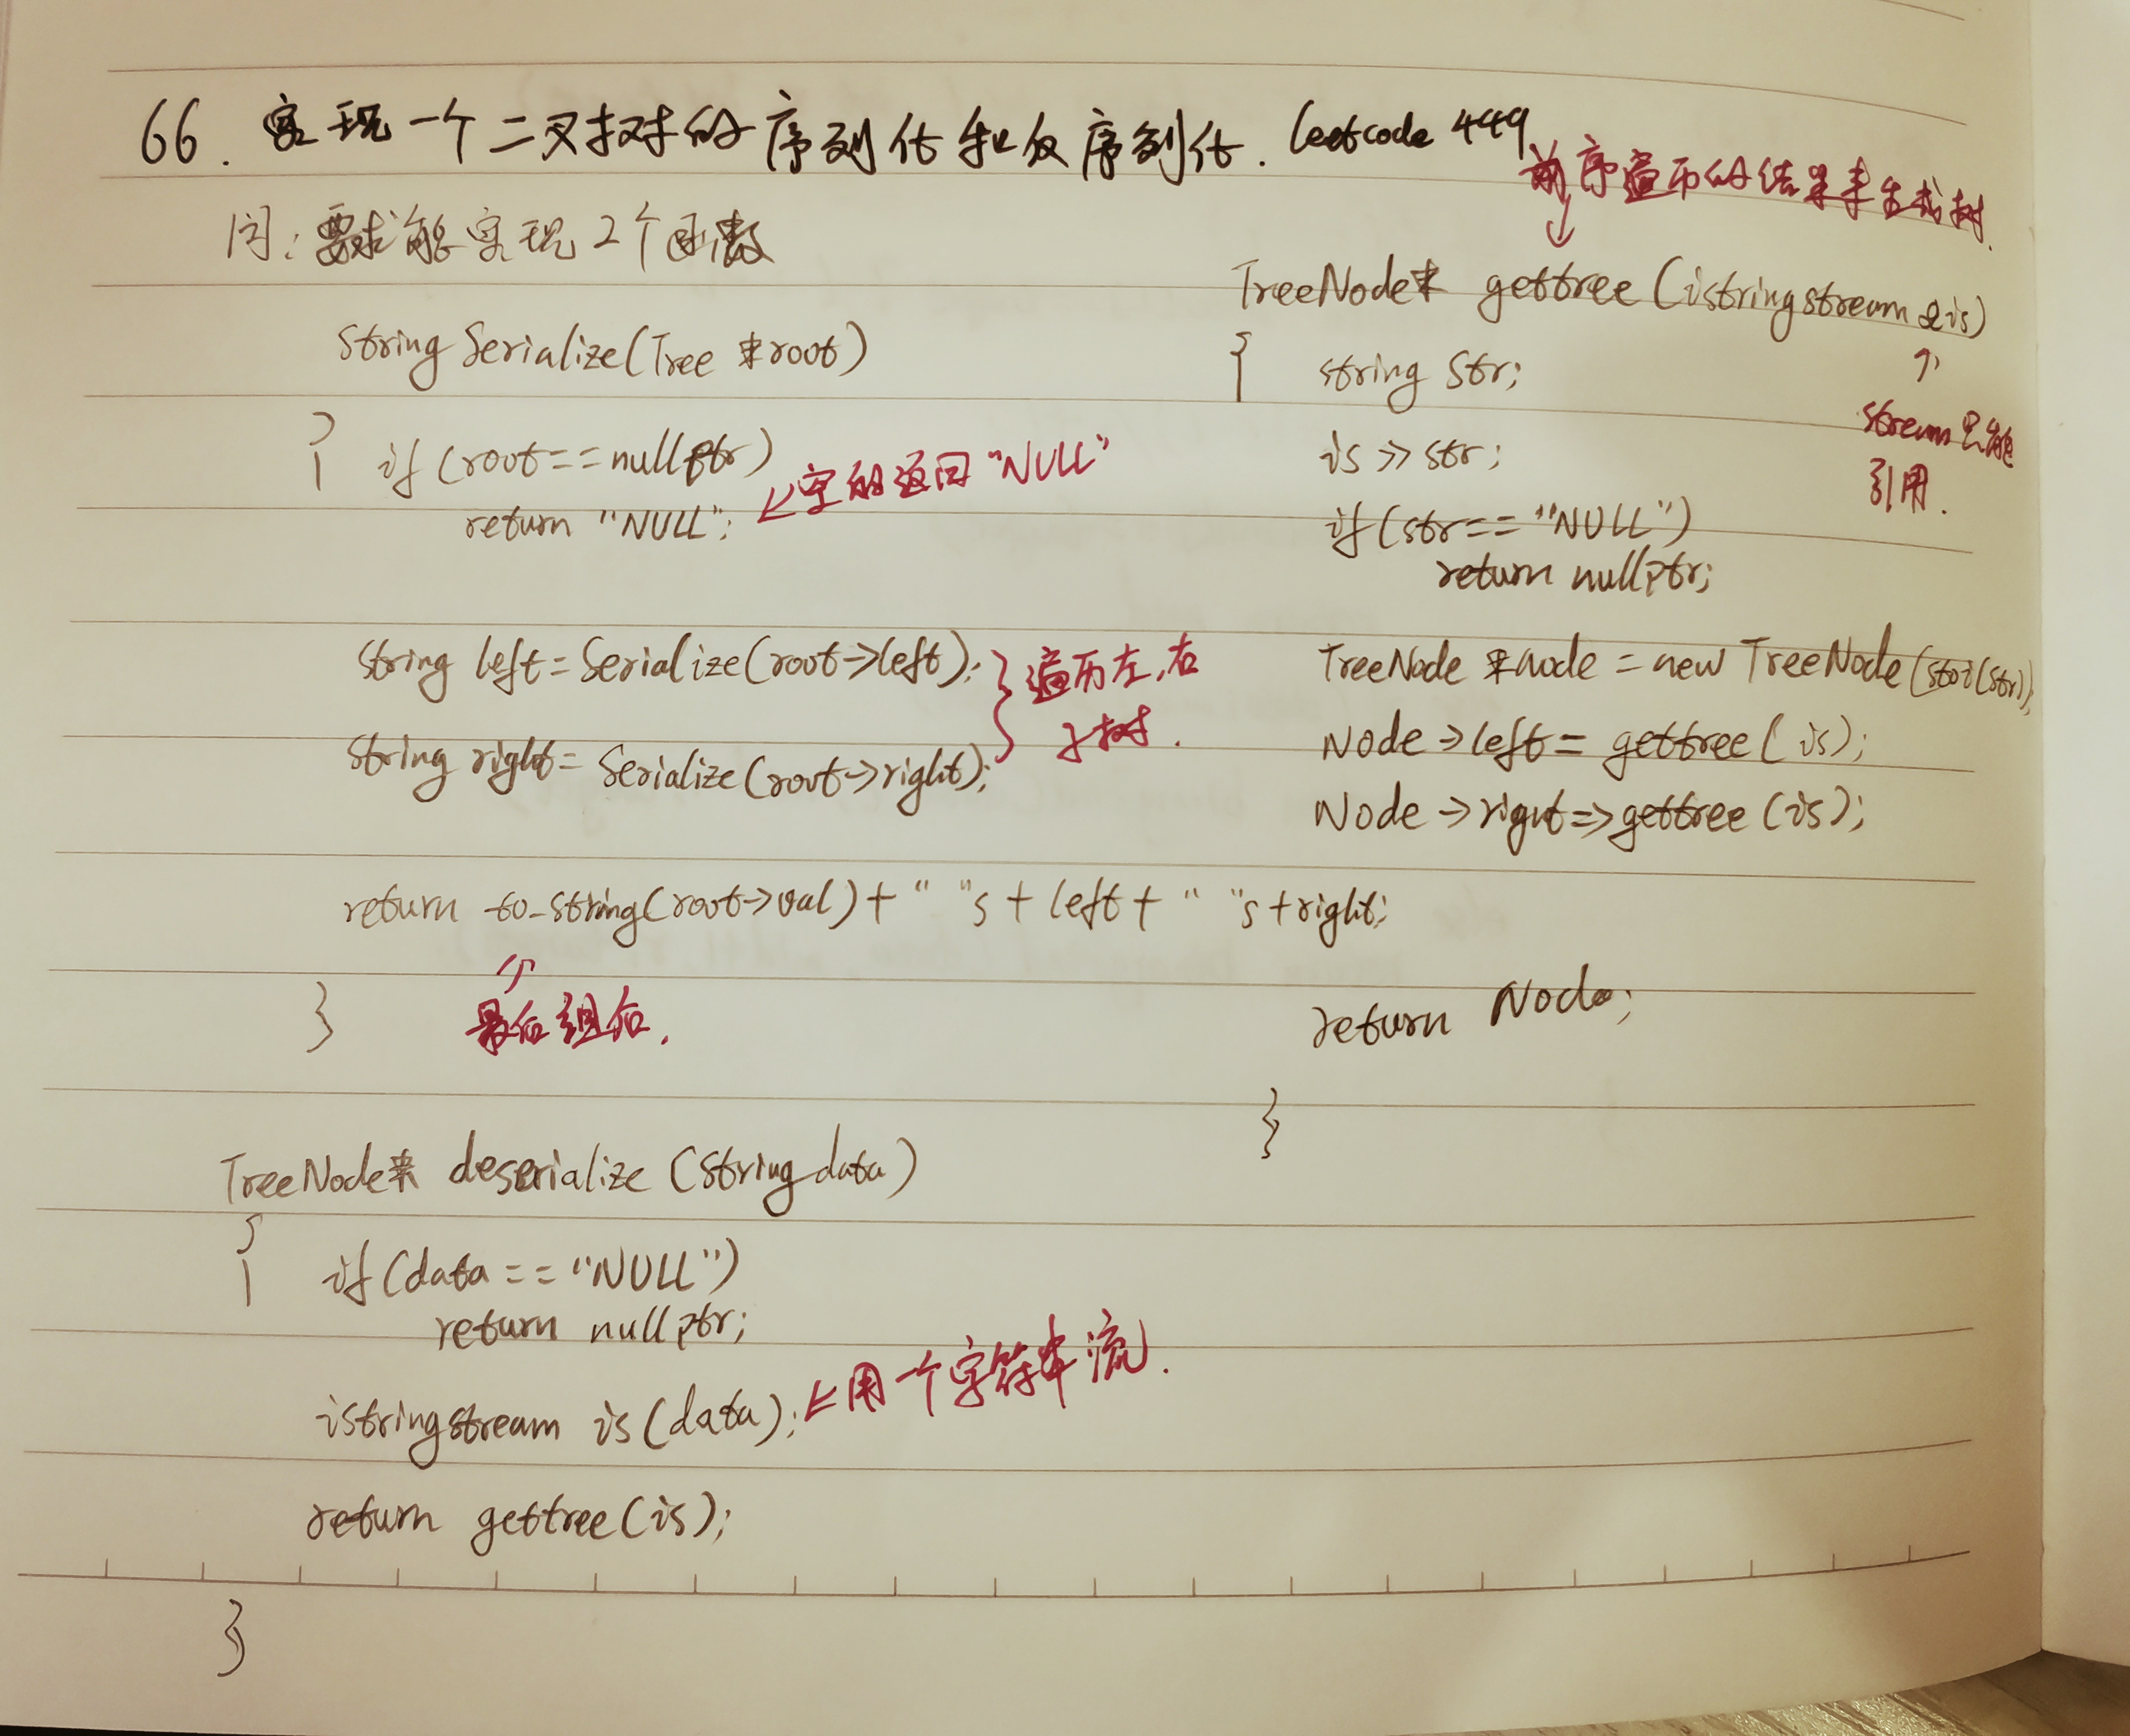 66. 实现一个二叉树的序列化和反序列化. leetcode 449
问: 要求能实现2个函数
String Serialize(Tree *root)
{ if (root==nullptr) ←空的返回"NULL"
return "NULL";
String left=Serialize(root->left); } 遍历左,右
String right=Serialize(root->right); 子树.
return to_string(root->val)+" "s+left+" "s+right;
↑
} 最后组合.
TreeNode* deserialize (String data)
{ if (data=="NULL")
return nullptr;
istringstream is(data); ←用一个字符串流.
return gettree(is);
}
前序遍历的结果来生成树.
↓
TreeNode* gettree (istringstream &is)
{ string str; ↑
is >> str; stream只能
引用.
if (str=="NULL")
return nullptr;
TreeNode *node = new TreeNode(stoi(str));
Node->left= gettree(is);
Node->right=>gettree(is);
return Node;
}